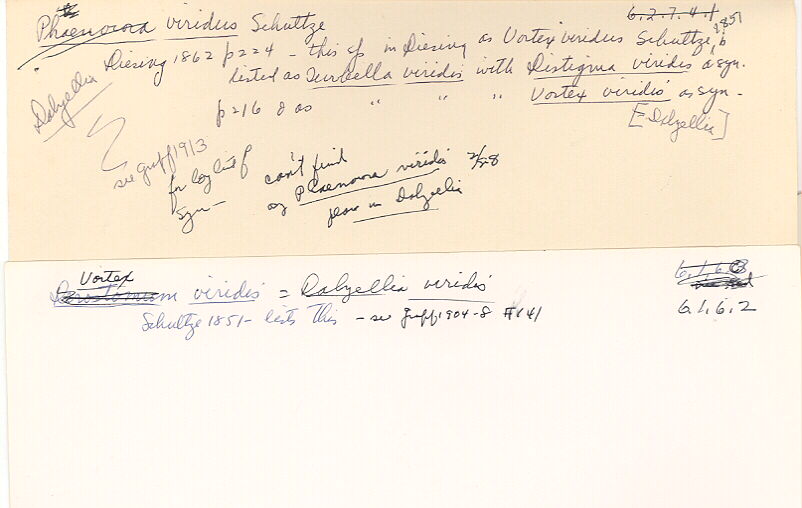 Phaenocora viridis Schultze 6.2.7.4.1
Diesing 1862 p224 - this sp in Diesing as Vortex viridis Schultze, 1851
listed as Turbella viridis with Distigma viridis a syn.
p216 as " " " Vortex viridis a syn -
[= Dalyellia]
Dalyellia
see Graff 1913
for long list of
syn -
can't find
as Phaenocora viridis 2/58
now in Dalyellia
Vortex
viridis = Dalyellia viridis 6.1.6.8
6.1.6.2
Schultze 1851 - lists this - see Graff 1904-8 #141